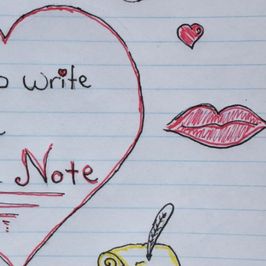 o write
Note